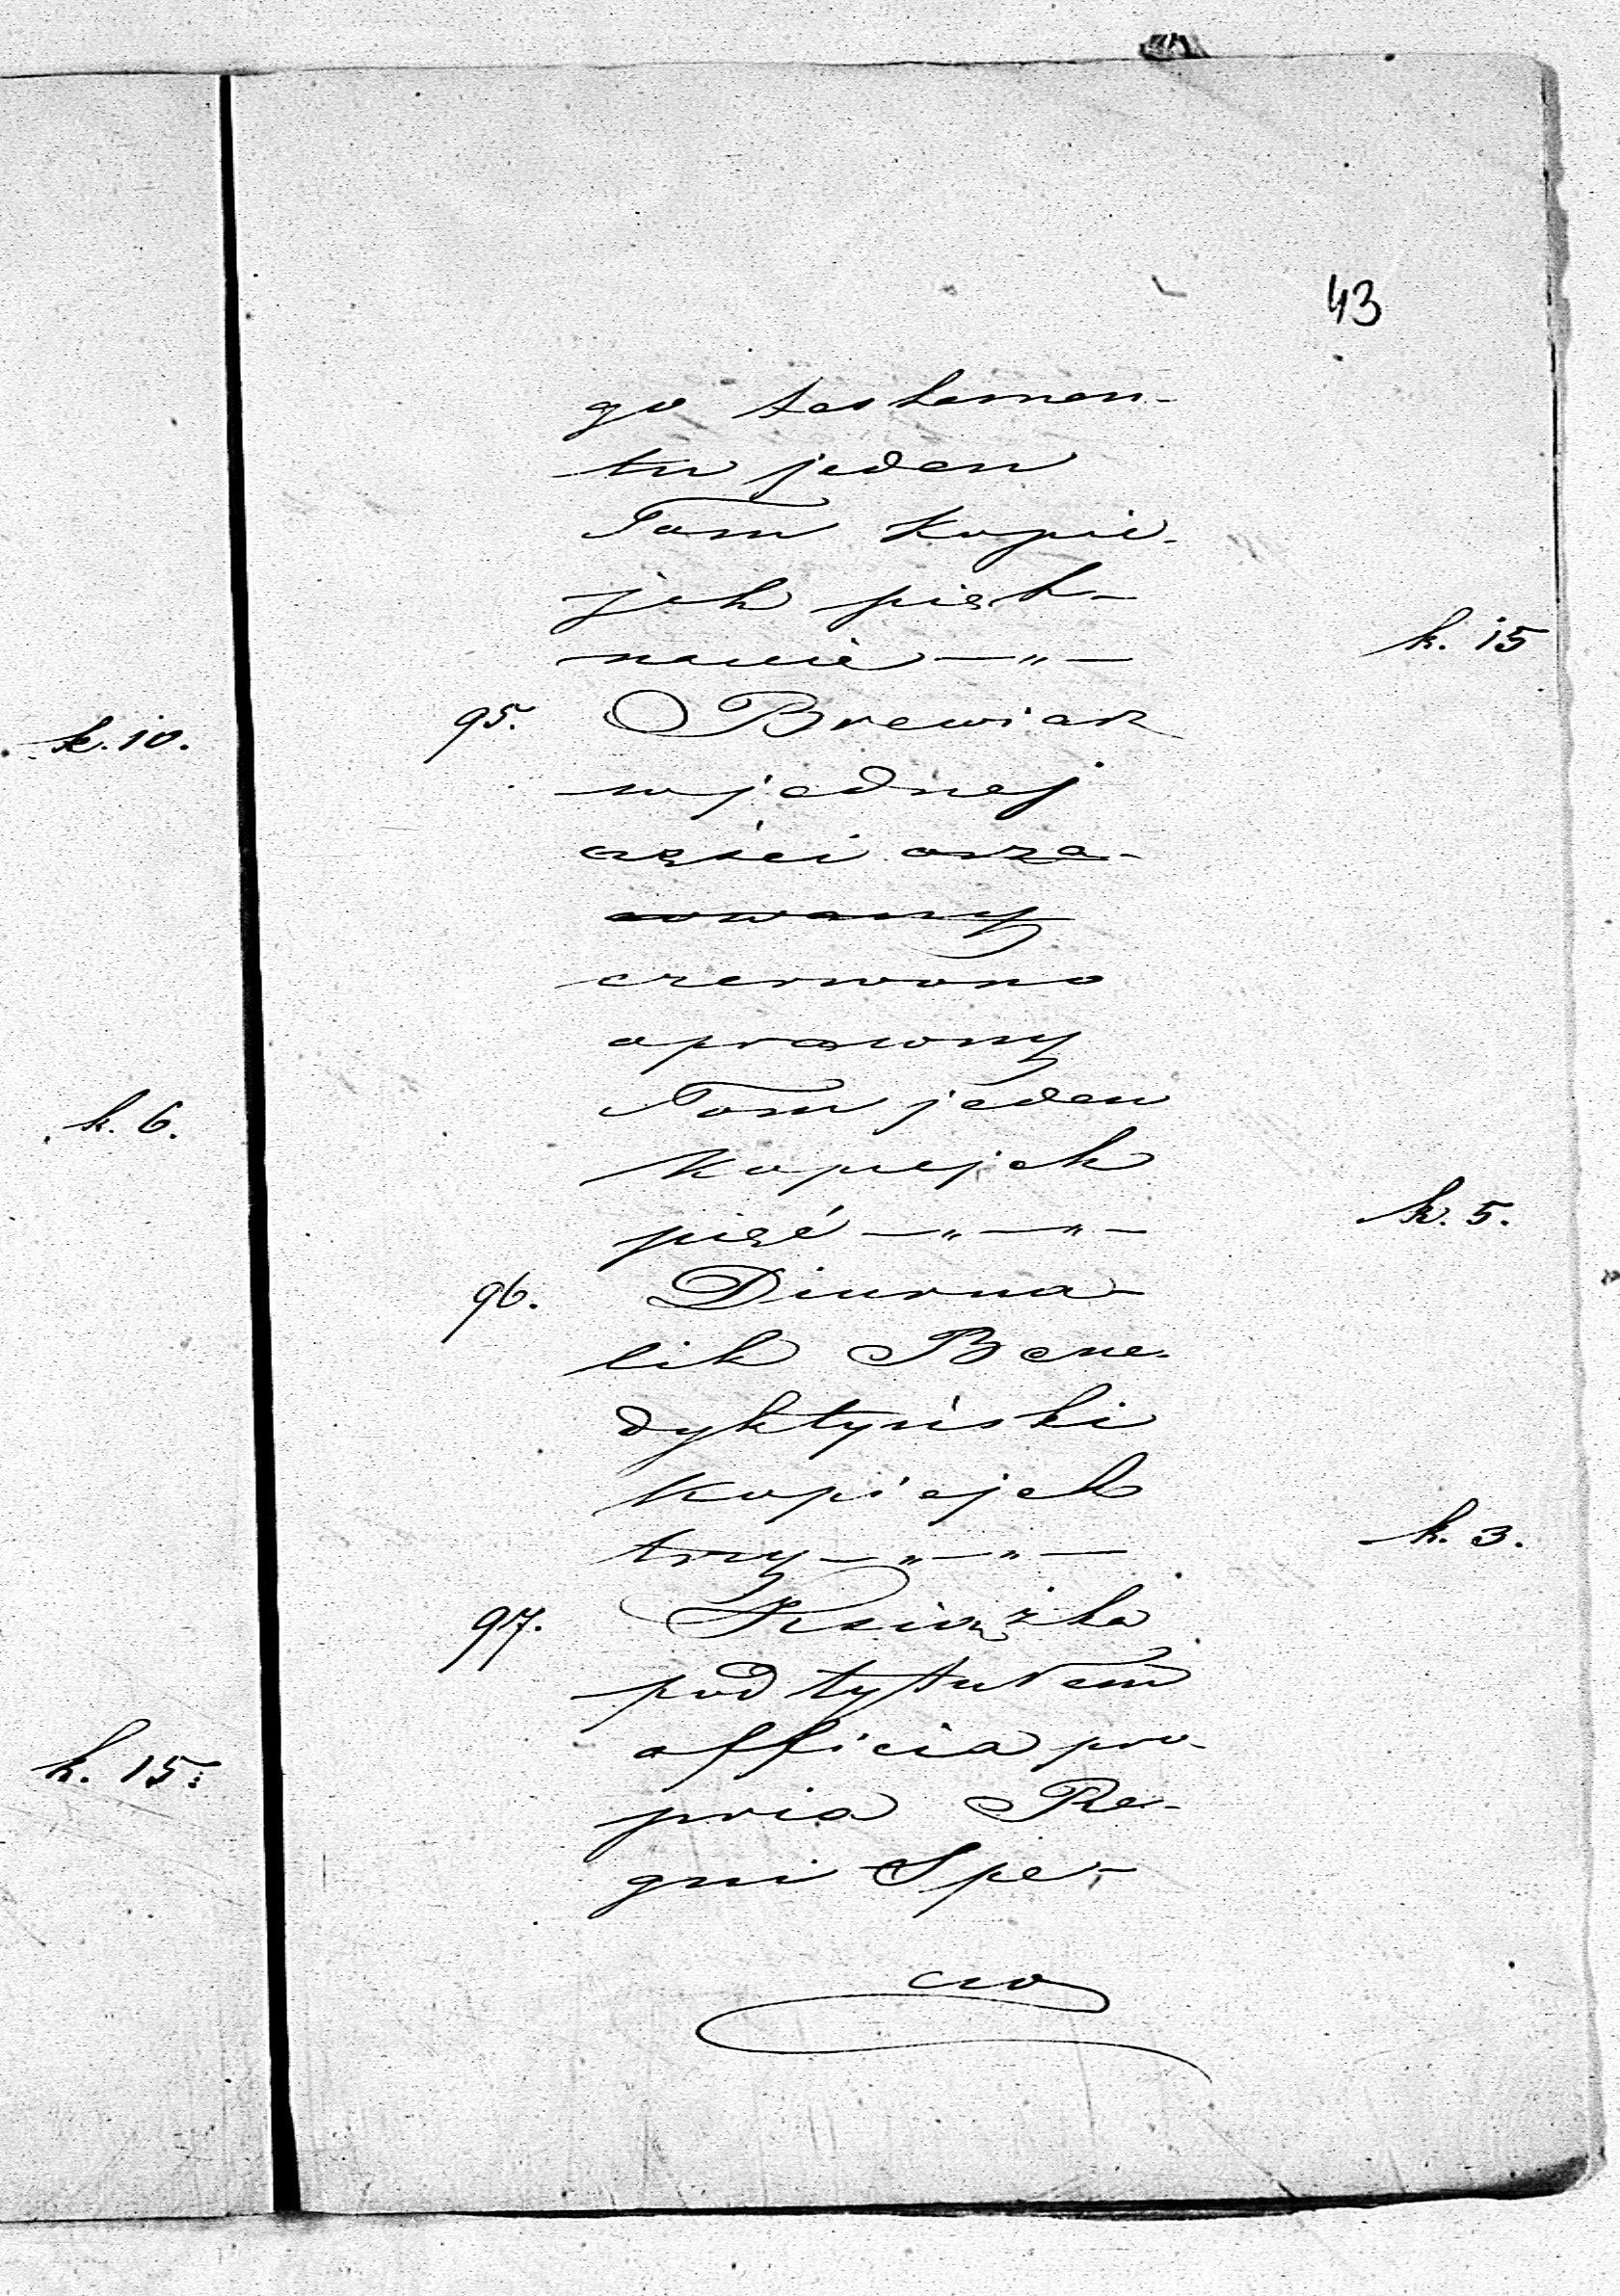 43
go testamen-
tu jeden
Tom kopie-
jek pięt-
nascie — " — k. 15
k. 10.
95. Brewiarz
w jednej
części
czerwono
oprawny
Tom jeden
k. 6.
Kopiejek
pięć — " — " — k. 5.
96. Diurna-
lik Bene-
dyktyński
Kopiejek
trzy — " — " — k. 3.
97. Książka
pod tytułem
officia pro-
k. 15.
pria Re-
gni Spe-